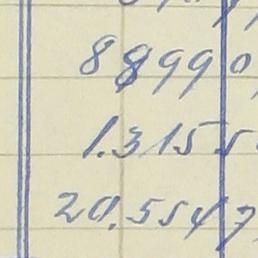 88990
1.3155
20.5547